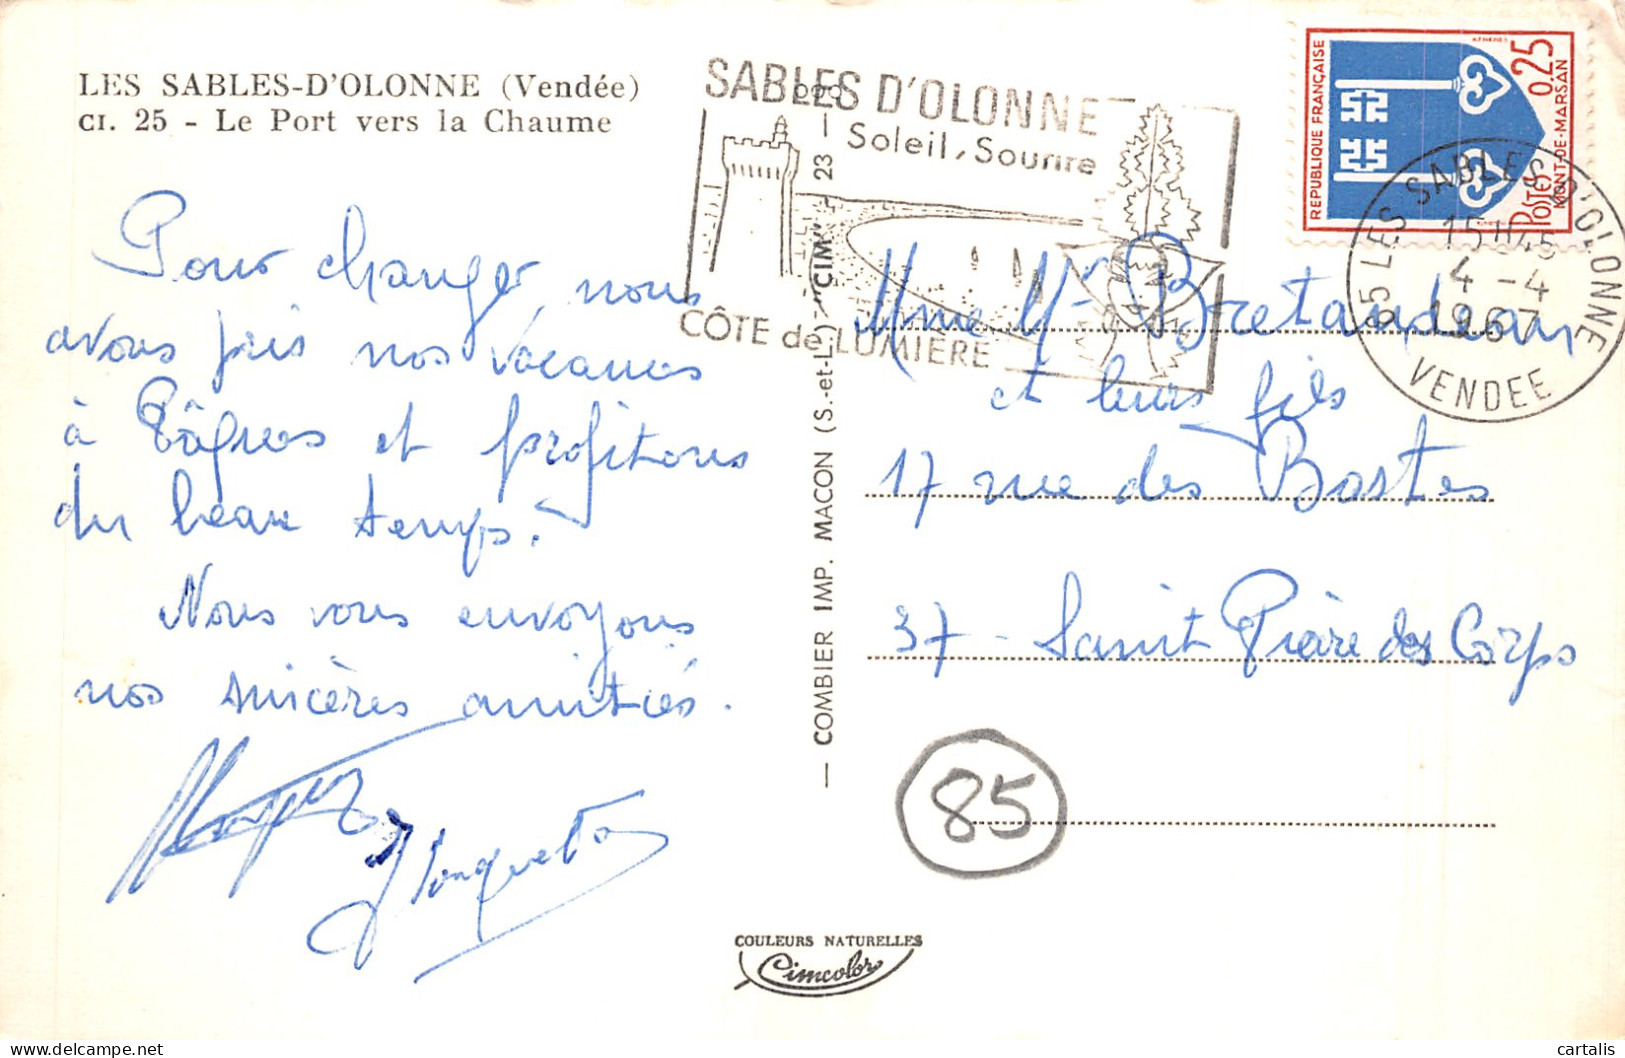 LES SABLES-D'OLONNE (Vendée)
CI. 25 - Le Port vers la Chaume
Pour changer, nous
avons pris nos vacances
à Pâques et profitons
du beau temps.
Nous vous envoyons
nos sincères amitiés.
SABLES D'OLONNE
Soleil, Sourire
CÔTE de LUMIÈRE
— COMBIER IMP. MACON (S.-et-L.) "CIM" — 23 —
RÉPUBLIQUE FRANÇAISE
0,25
POSTES
MONT-DE-MARSAN
85 LES SABLES D'OLONNE
15H45
4-4
1967
VENDEE
Mme Mr Bretaudeau
et leurs fils
17 rue des Bastes
37 - Saint Pierre des Corps
85
COULEURS NATURELLES
Cimcolor
cartalis